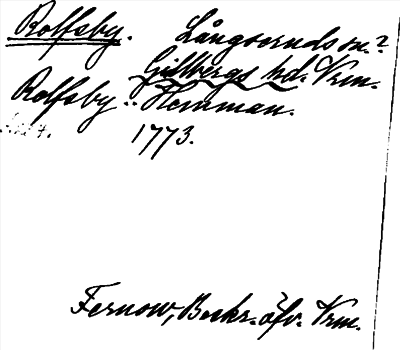 Rolfsby. Långseruds sn.?
Gillbergs hd. Vrm.
Rolfsby.. Hemman.
1773.
Fernow, Beskr. öfv. Vrm.